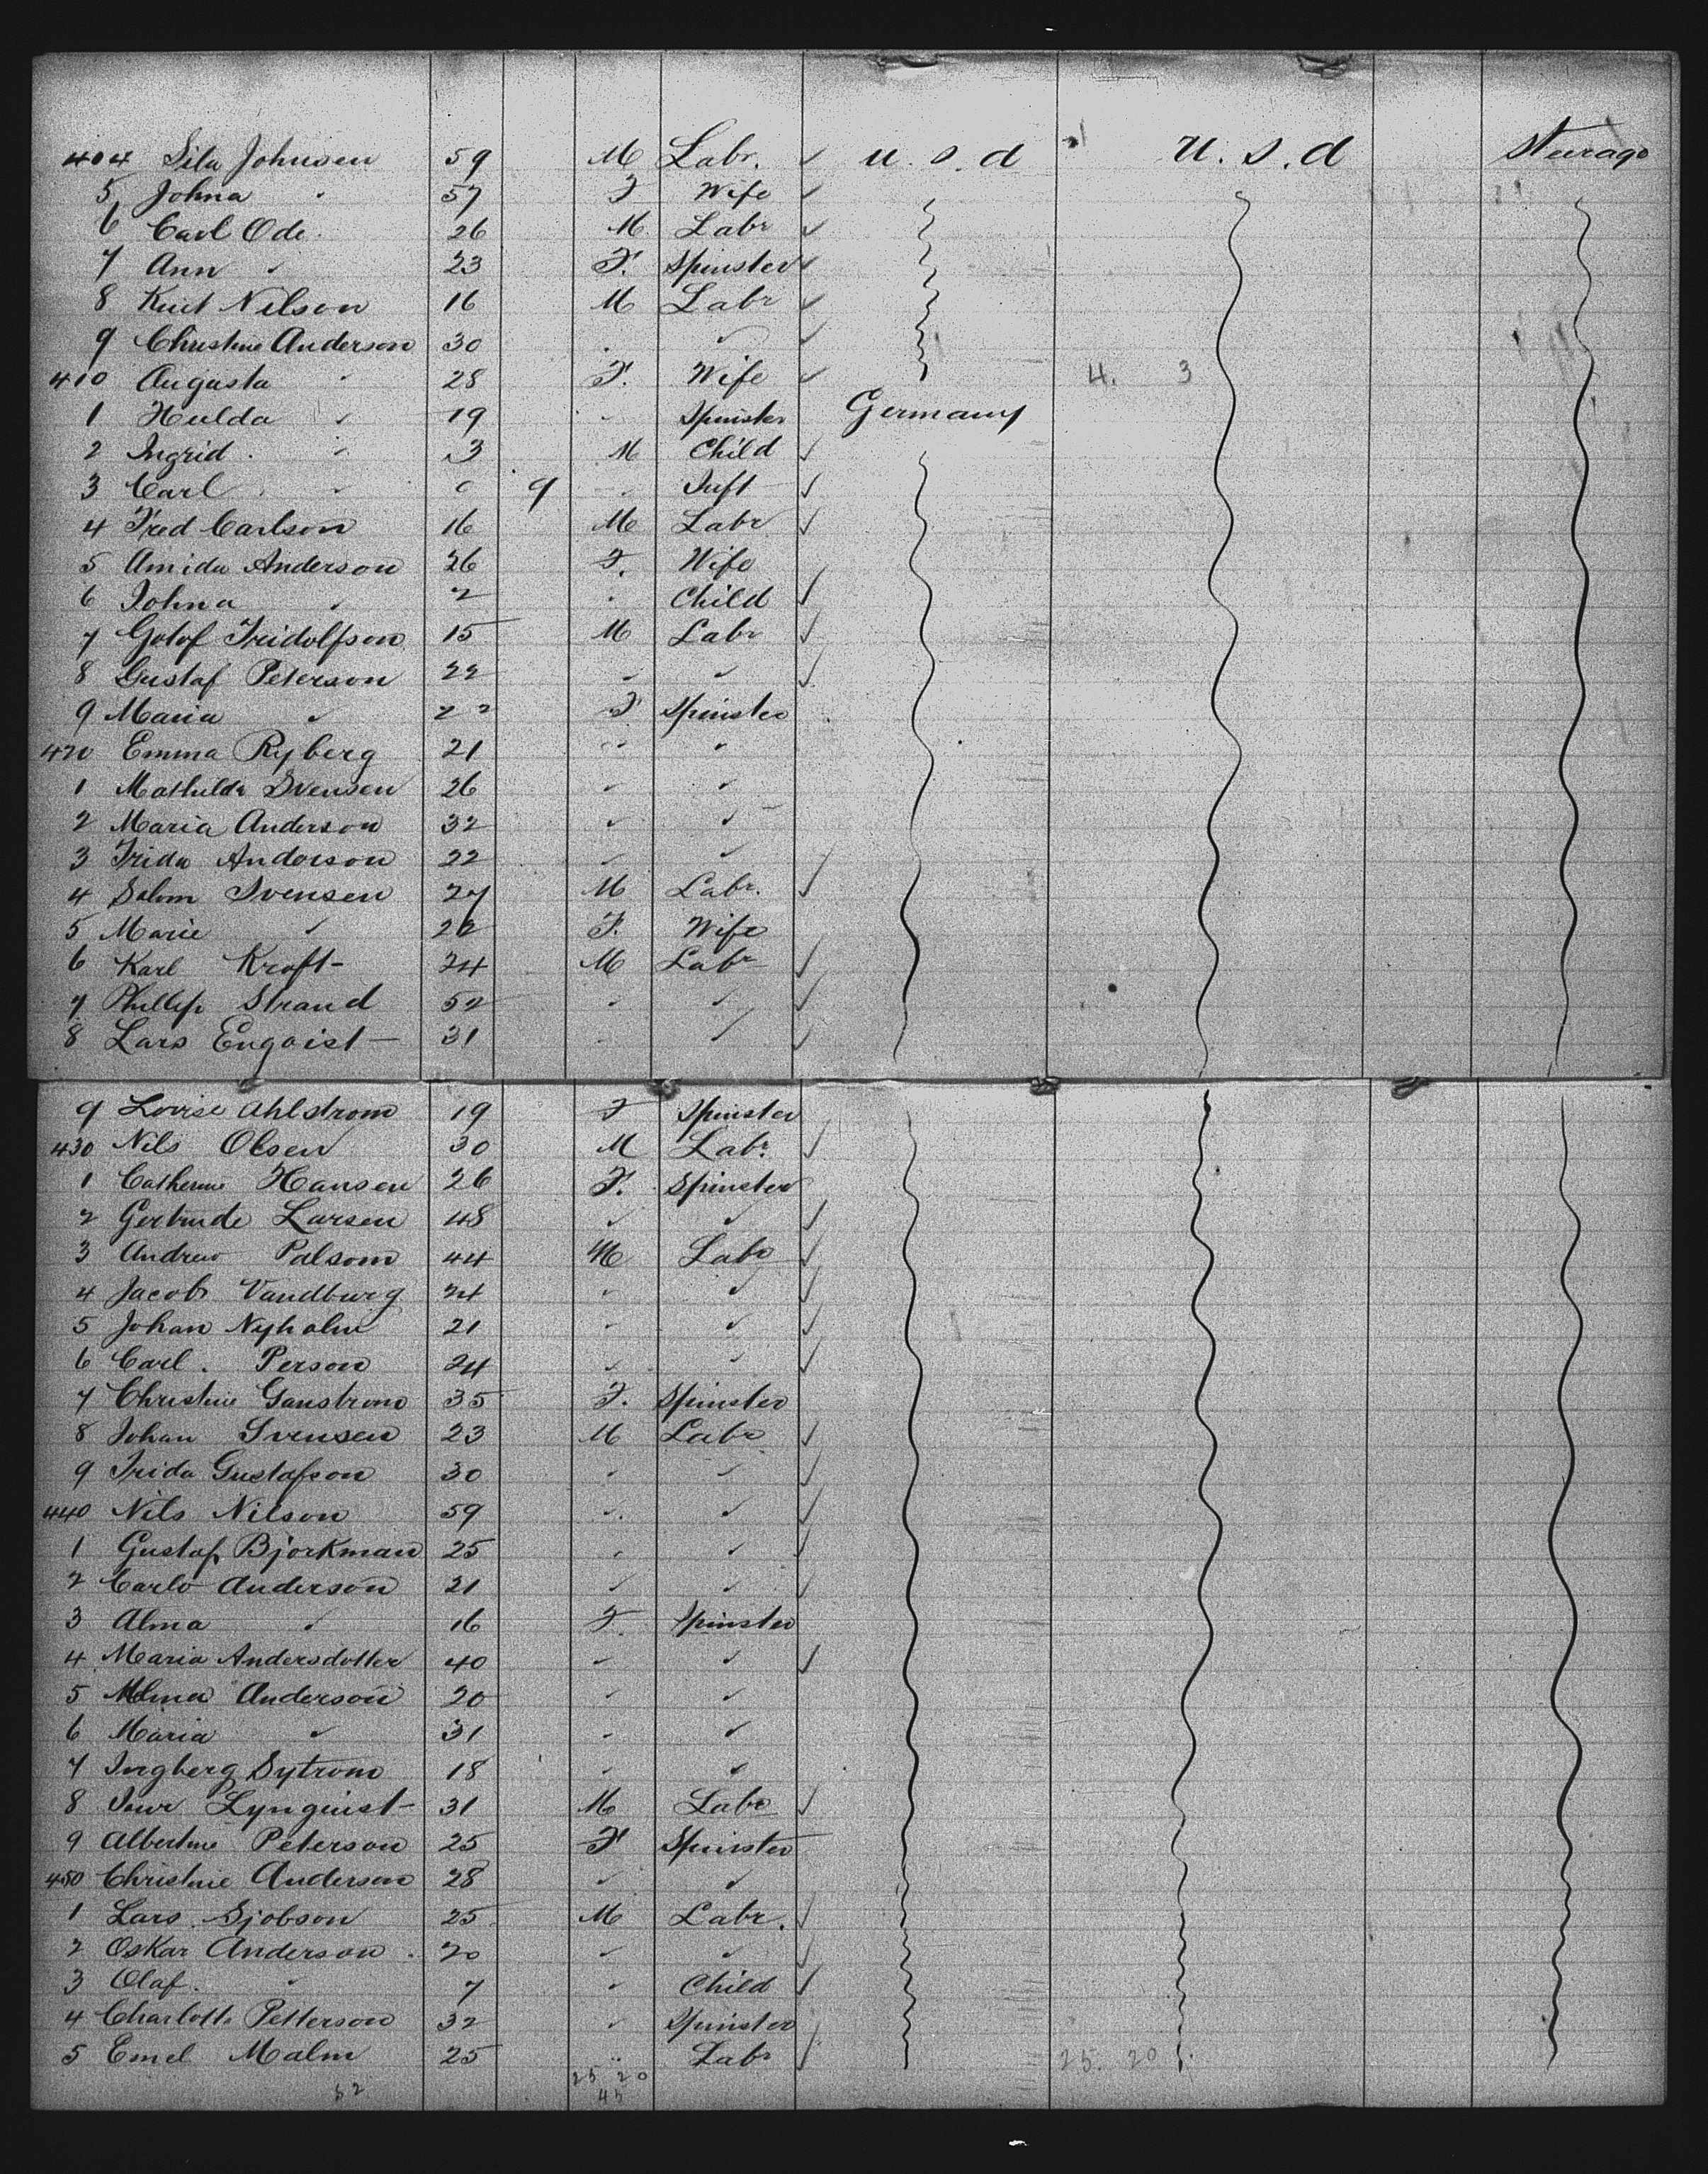 404 Sila Johnsen 59 M Labr. ✓ U. S. A U. S. A Steerage
5 Johna " 57 F Wife ✓
6 Carl Ode 26 M. Labr ✓
7 Ann " 23 F. Spinster ✓
8 Kurt Nelson 16 M Labr ✓
9 Christine Anderson 30 " " ✓
410 Augusta " 28 F. Wife ✓ 4. 3
1 Hulda " 19 " Spinster Germany
2 Ingrid " 3 M Child ✓
3 Carl " 0 9 " Inft ✓
4 Fred Carlson 16 M Labr ✓
5 Amida Anderson 26 F. Wife
6 Johna " 2 " Child ✓
7 Golof Fridolfson 15 M Labr ✓
8 Gustaf Peterson 22 " " ✓
9 Maria " 22 F Spinster
420 Emma Ryberg 21 " "
1 Mathilda Svensen 26 " "
2 Maria Anderson 32 " "
3 Frida Anderson 22 " " ✓
4 Salom Svensen 27 M Labr. ✓
5 Marie " 22 F. Wife
6 Karl Kroft 24 M Labr ✓
7 Phillip Strand 52 " " ✓
8 Lars Engqist 31 " " ✓
9 Lovise Ahlstrom 19 F Spinster
430 Nils Olsen 30 M Labr. ✓
1 Catherine Hansen 26 F. Spinster
2 Gertrude Larsen 48 " " ✓
3 Andrew Palsom 44 M Labr ✓
4 Jacob Vandburg 24 " " ✓
5 Johan Nyholm 21 " " ✓
6 Carl. Person 24 " " ✓
7 Christine Ganstrom 35 F. Spinster
8 Johan Svensen 23 M Labr ✓
9 Frida Gustafson 30 " " ✓
440 Nils Nilson 59 " " ✓
1 Gustaf Bjorkman 25 " " ✓
2 Carlo Anderson 21 " " ✓
3 Alma " 16 F. Spinster
4 Maria Andersdotter 40 " " ✓
5 Anderson 20 " "
6 Maria " 31 " "
7 Ingberg Sytrom 18 " "
8 Lynquist 31 M Labr ✓
9 Albertine Peterson 25 F Spinster
450 Christine Anderson 28 " "
1 Lars Sjobson 25 M Labr. ✓
2 Oskar Anderson 20 " " ✓
3 Olaf " 7 " Child ✓
4 Charlotte Petterson 32 " Spinster
5 Emel Malm 25 " Labr ✓ 25. 20
52 25 20
45